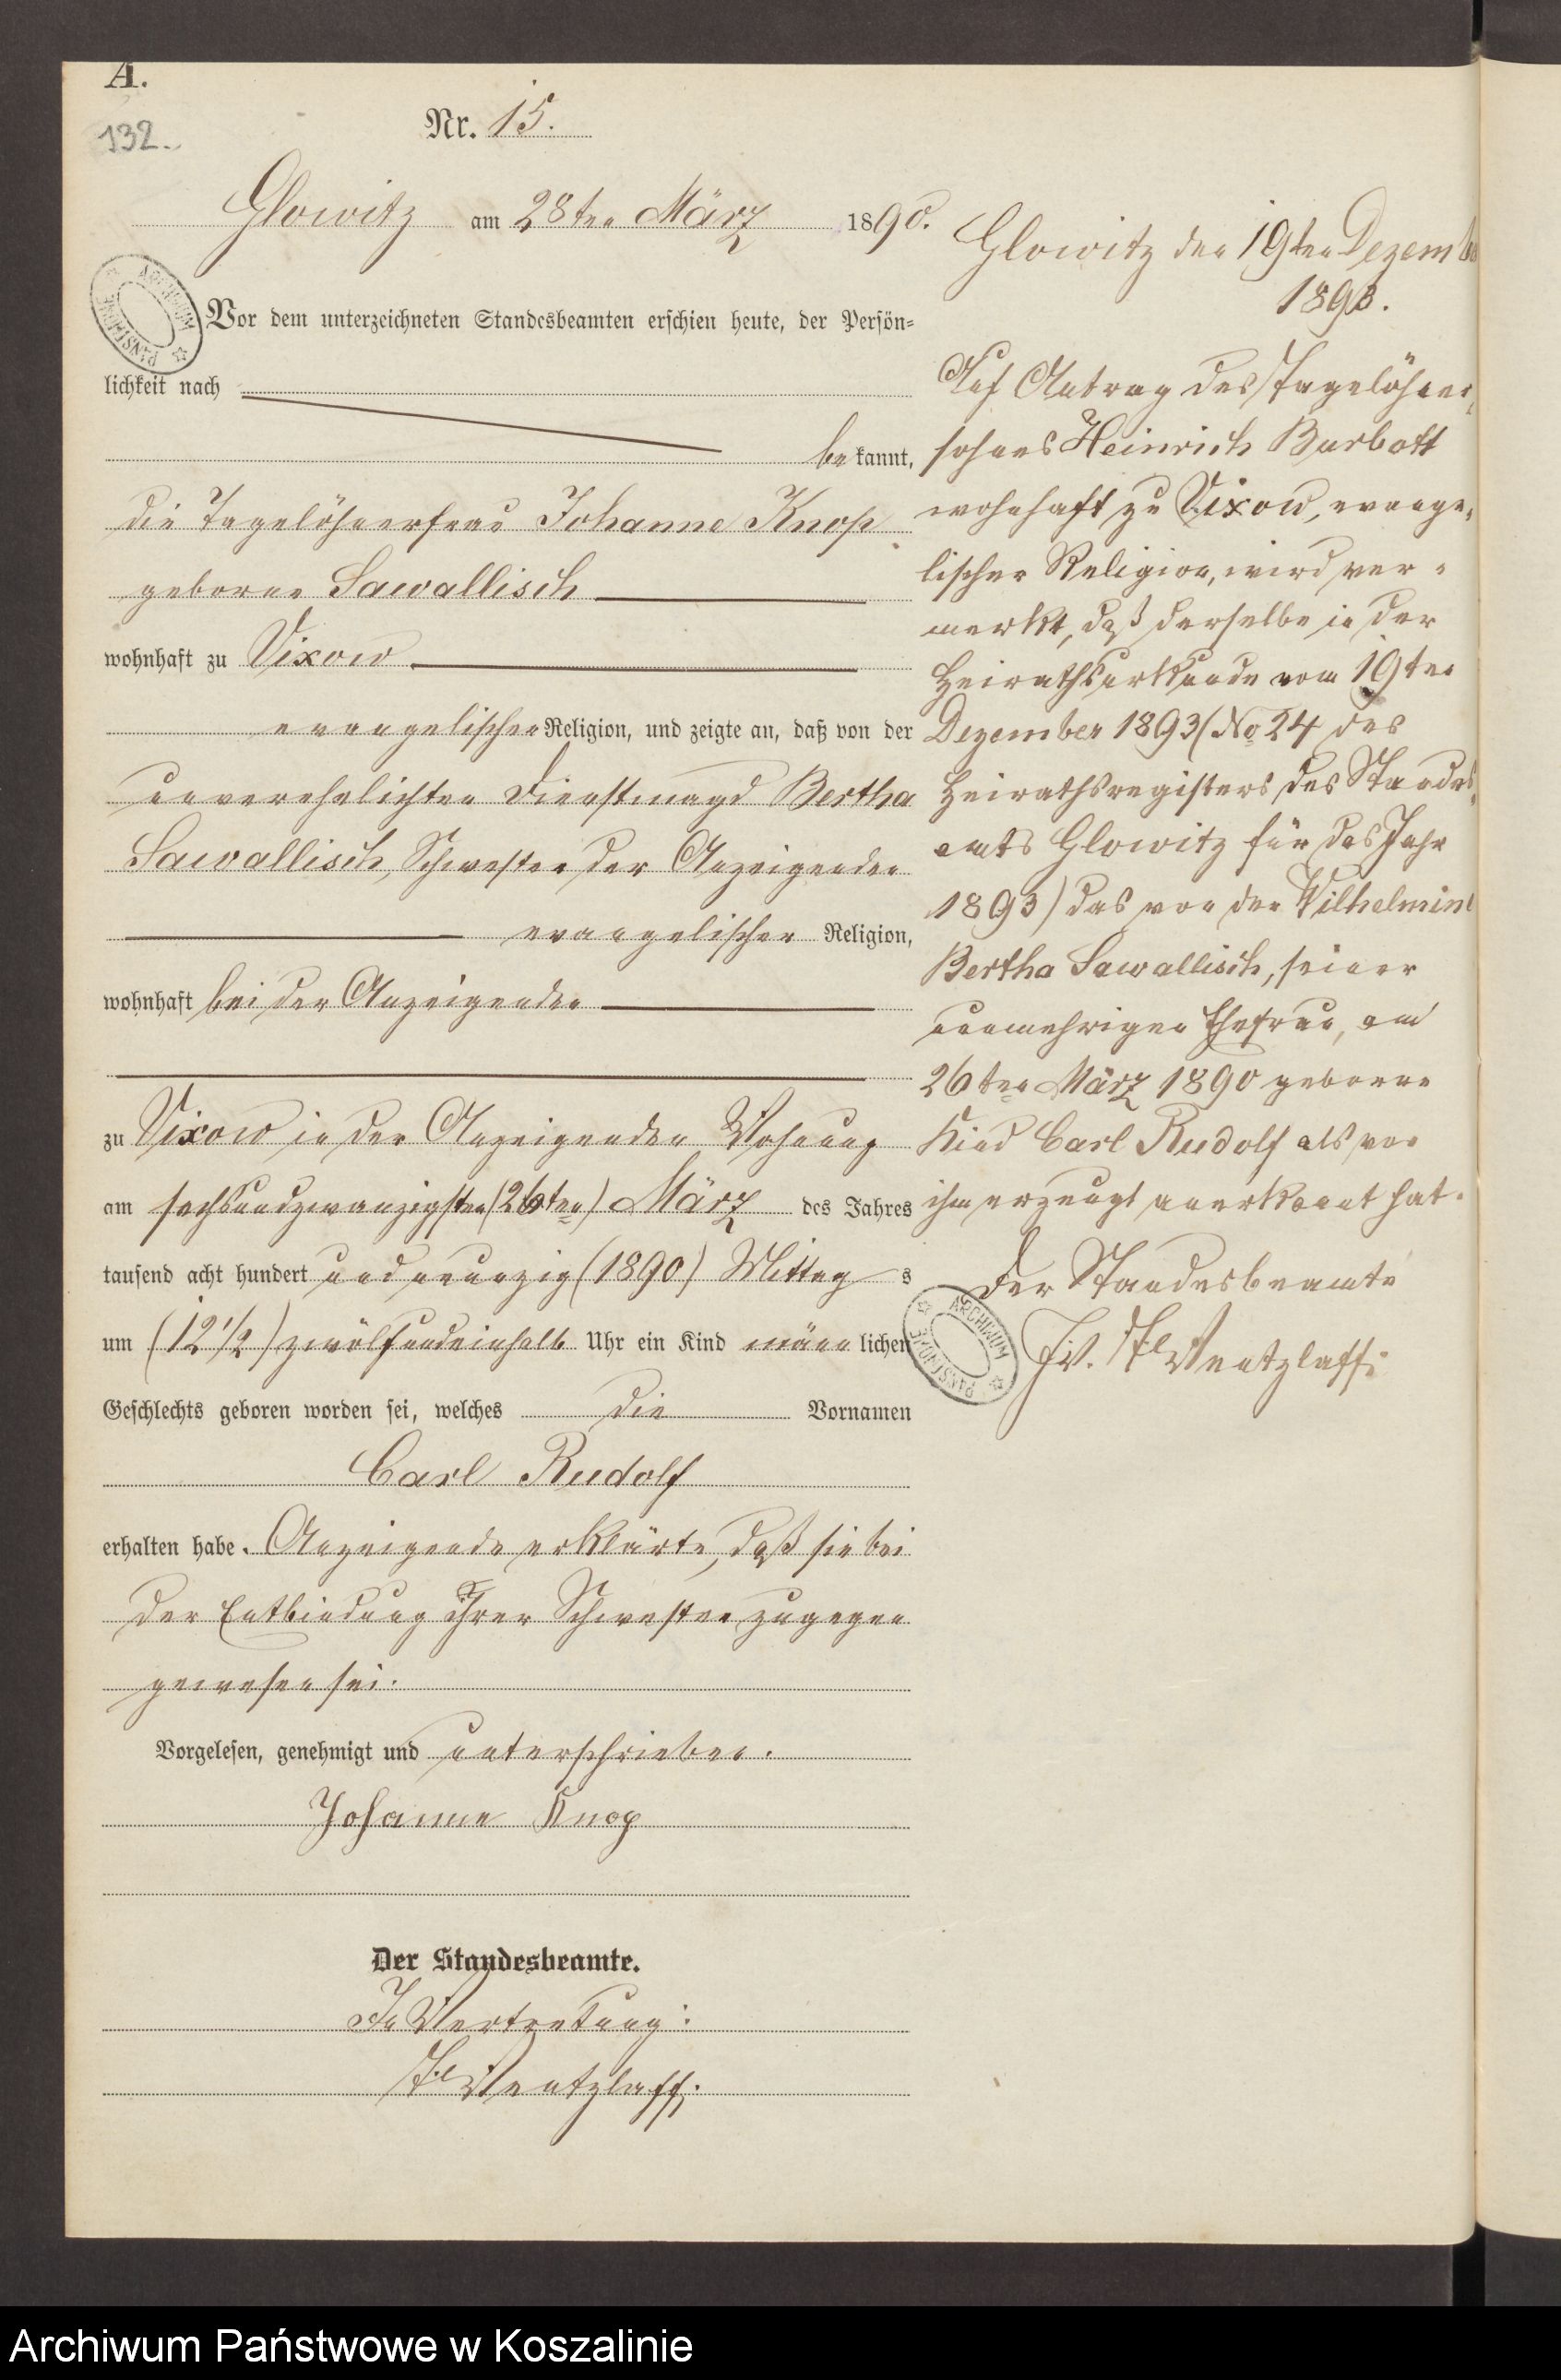 A.
132.
Nr. 15.
Glowitz am 28ten März 1890.
Vor dem unterzeichneten Standesbeamten erschien heute, der Persön-
lichkeit nach
bekannt,
die Tagelöhnerfrau Johanne Knop
geborne Sawallisch
wohnhaft zu Vixow
evangelischer Religion, und zeigte an, daß von der
unverehelichten Dienstmagd Bertha
Sawallisch, Schwester der Anzeigenden
evangelischer Religion,
wohnhaft bei der Anzeigenden
zu Vixow in der Anzeigenden Wohnung
am sechsundzwanzigsten (26ten) März des Jahres
tausend acht hundert und neunzig (1890) Mittags
um (12 1/2) zwölfundeinhalb Uhr ein Kind männlichen
Geschlechts geboren worden sei, welches die Vornamen
Carl Rudolf
erhalten habe. Anzeigende erklärte, daß sie bei
der Entbindung ihrer Schwester zugegen
gewesen sei.
Vorgelesen, genehmigt und unterschrieben.
Johanne Knop
Der Standesbeamte.
In Vertretung:
Wentzlaff.
Glowitz den 19ten Dezember
1893.
Auf Antrag des Tagelöhner-
sohnes Heinrich Burbott
wohnhaft zu Vixow, evange-
lischer Religion, wird ver-
merkt, daß derselbe in der
Heirathsurkunde vom 19ten
Dezember 1893 (No 24 des
Heirathsregisters des Standes-
amts Glowitz für das Jahr
1893) das von der Wilhelmine
Bertha Sawallisch, seiner
nunmehrigen Ehefrau, am
26ten März 1890 geborne
Kind Carl Rudolf als von
ihm erzeugt anerkannt hat.
Der Standesbeamte
J.V. Wentzlaff.
ARCHIWUM PAŃSTWOWE
ARCHIWUM PAŃSTWOWE
Archiwum Państwowe w Koszalinie